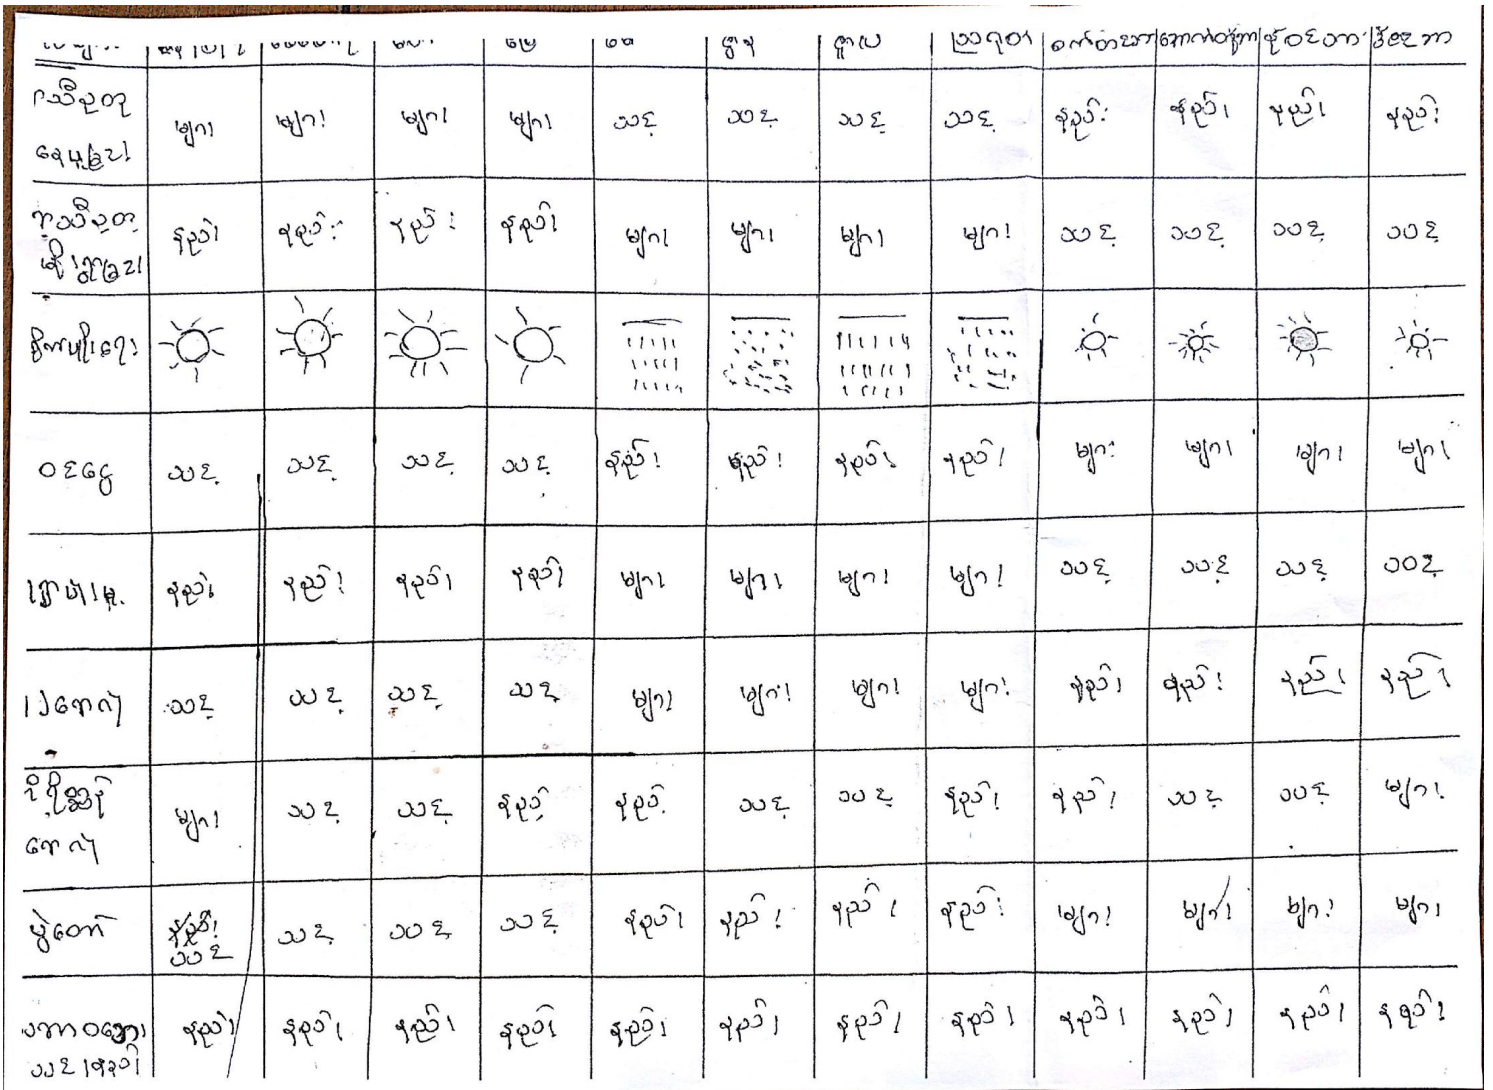 ဇွန် ဇူလ ဩဂုတ် စက်တင်ဘာ အောက်တိုဘာ နိုဝင်ဘာ ဒီဇင်ဘာ
ရာသီဥတု
နေပူခြင်း များ များ များ များ သင့် သင့် သင့် သင့် နည်း နည်း နည်း နည်း
ရာသီဥတု
မိုးရွာခြင်း နည်း နည်း နည်း နည်း များ များ များ များ သင့် သင့် သင့် သင့်
စိုက်ပျိုးရေး
ဝင်ငွေ သင့် သင့် သင့် သင့် နည်း နည်း နည်း နည်း များ များ များ များ
နည်း နည်း နည်း နည်း များ များ များ များ သင့် သင့် သင့် သင့်
သင့် သင့် သင့် သင့် များ များ များ များ နည်း နည်း နည်း နည်း
များ သင့် သင့် နည်း နည်း သင့် သင့် နည်း နည်း သင့် သင့် များ
ပွဲတော် သင့် သင့် သင့် သင့် နည်း နည်း နည်း နည်း များ များ များ များ
နည်း နည်း နည်း နည်း နည်း နည်း နည်း နည်း နည်း နည်း နည်း နည်း